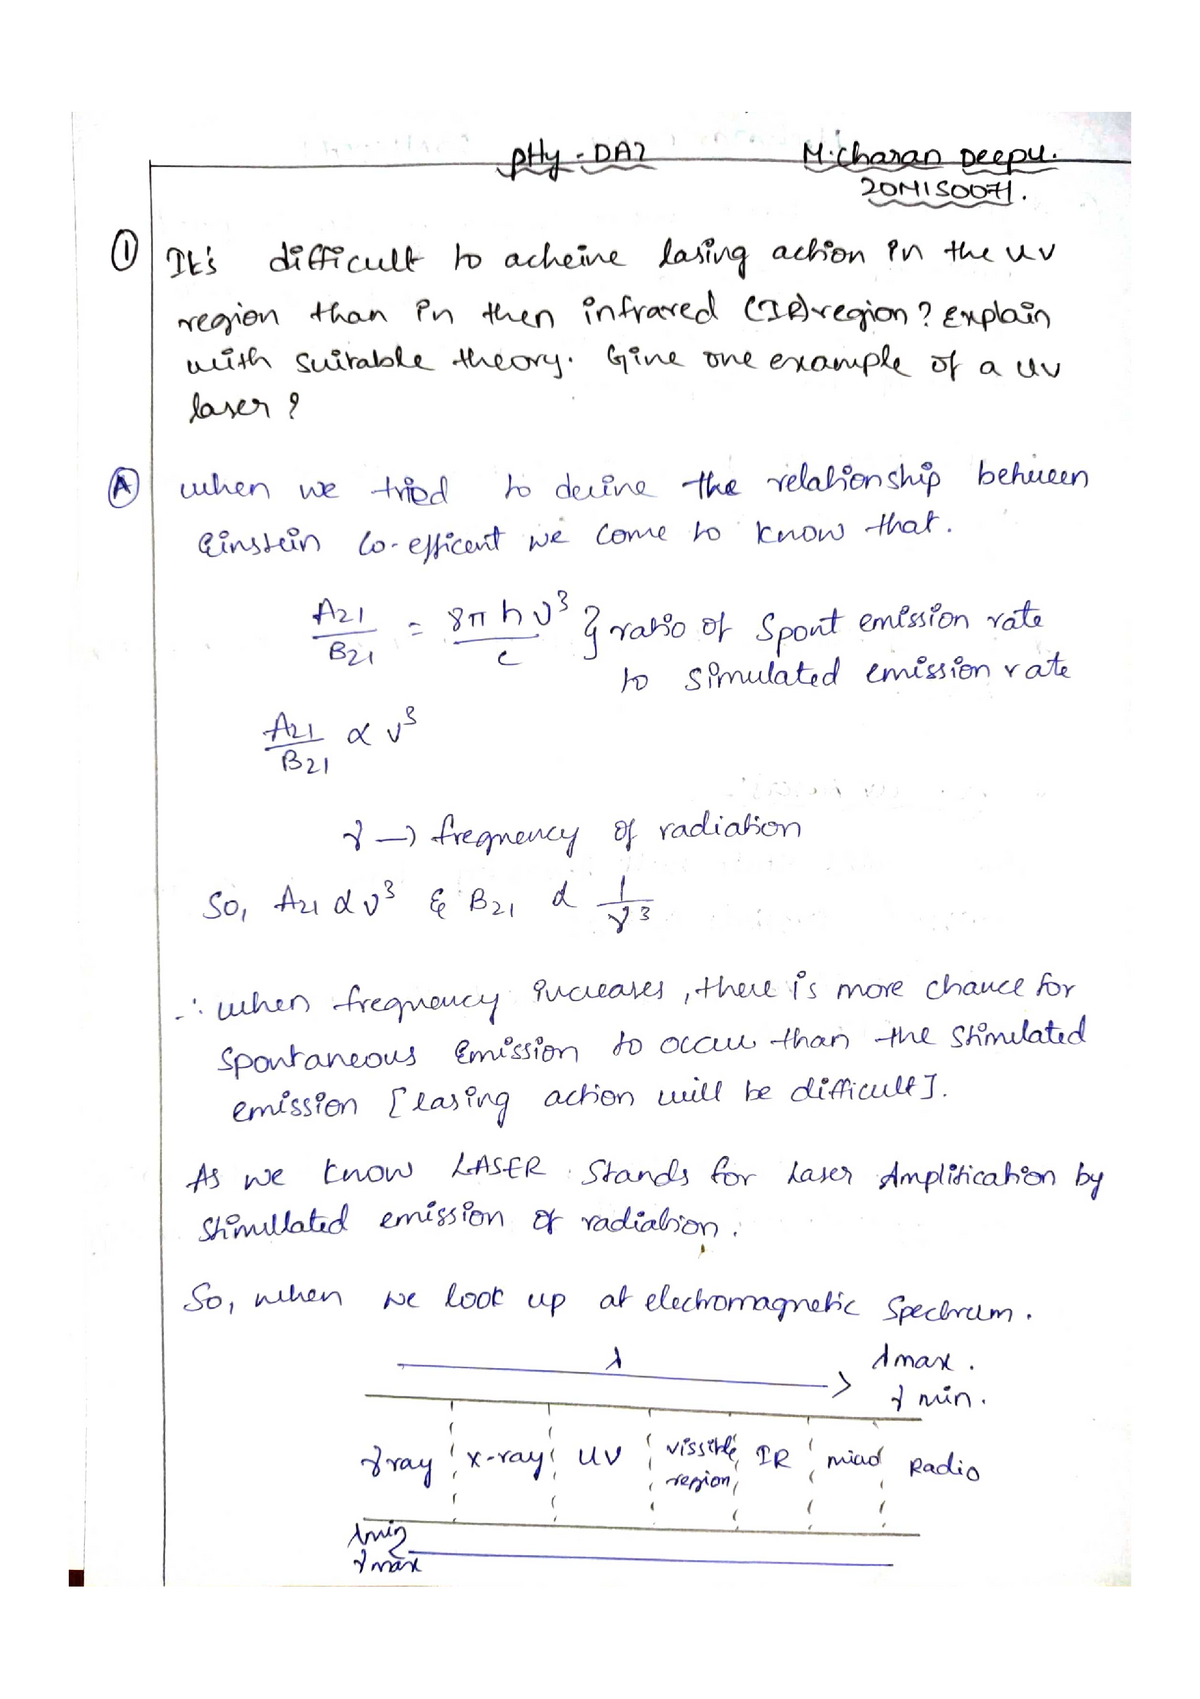 PHy - DA2 M. Charan Deepu.
20MIS0071.
① It's difficult to acheive lasing action in the UV
region than in then infrared (IR) region? Explain
with suitable theory. Give one example of a UV
laser?
Ⓐ when we tried to derive the relationship between
Einstein Co-efficent we come to know that.
A21/B21 = 8πhν³/c } ratio of Spont emission rate
to simulated emission rate
A21/B21 ∝ ν³
γ → frequency of radiation
So, A21 ∝ ν³ & B21 ∝ 1/γ³
∴ when frequency increases, there is more chance for
spontaneous Emission to occur than the stimulated
emission [lasing action will be difficult].
As we know LASER Stands for Laser Amplification by
Stimullated emission of radiation.
So, when we look up at electromagnetic Spectrum.
λ λmax.
γ min.
γ ray x-ray UV vissible region IR Radio
λmin
γ max